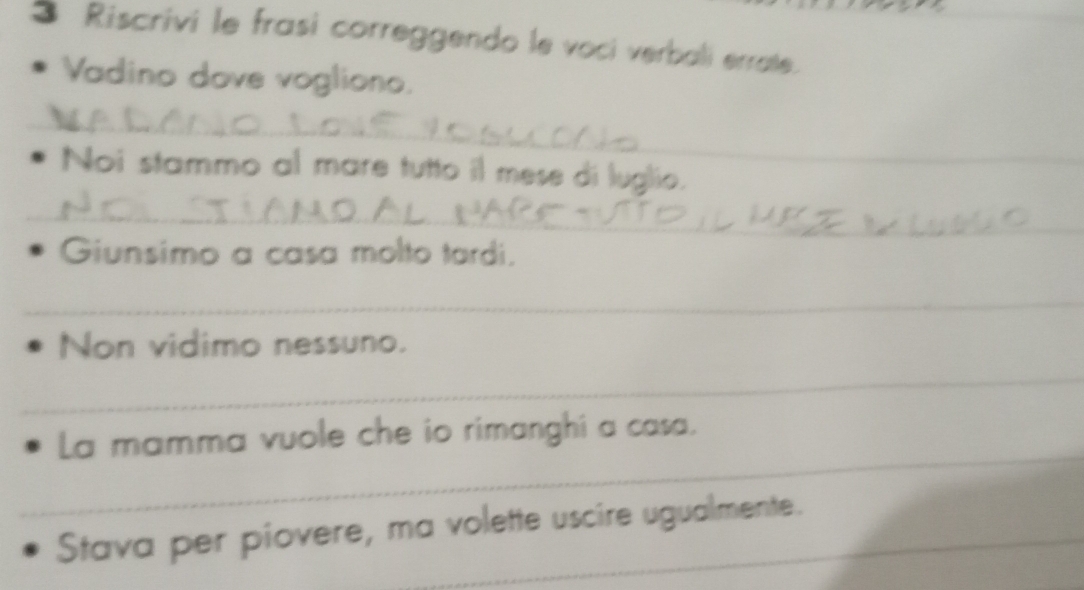 3 Riscrivi le frasi correggendo le voci verbali errate.
• Vadino dove vogliono.
VADANO DOVE VOGLIONO
• Noi stammo al mare tutto il mese di luglio.
NOI STIAMO AL MARE TUTTO IL MESE DI LUGLIO
• Giunsimo a casa molto tardi.
• Non vidimo nessuno.
• La mamma vuole che io rimanghi a casa.
• Stava per piovere, ma volette uscire ugualmente.